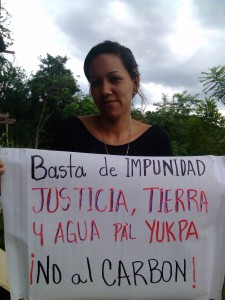 Basta de IMPUNIDAD
JUSTICIA, TIERRA
Y AGUA PAL YUKPA
¡NO al CARBON!